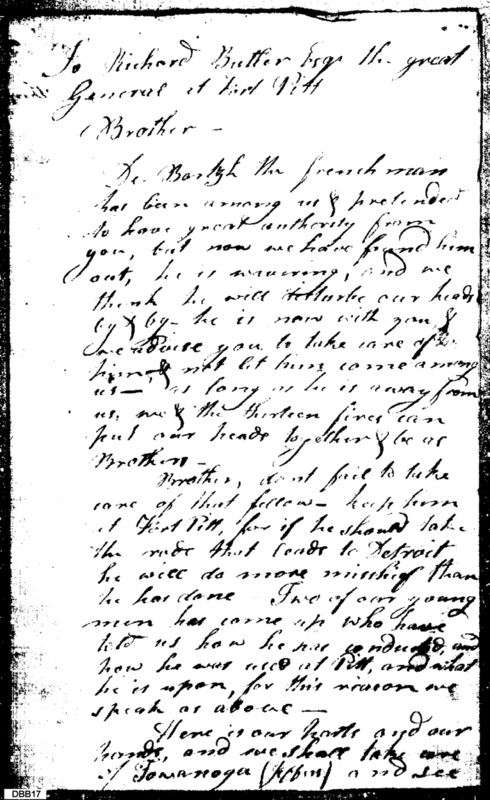 To Richard Butler Esqr the great
General at Fort Pitt
Brother —
De Bartzh the frenchman
has been among us & pretended
to have great authority from
you, but now we have found him
out, he is wavering, and we
think he will disturbe our heads
by & by — he is now with you &
we advise you to take care of
him, & not let him come among
us — as long as he is away from
us, we & the thirteen fires can
put our heads together & be as
Brothers —
Brother, dont fail to take
care of that fellow — keep him
at Fort Pitt, for if he should take
the rode that leads to Detroit
he will do more mischief than
he has done Two of our young
men has come up who have
told us how he has conducted, and
how he was used at Pitt, and what
he is upon, for this reason we
speak as above —
Here is our harts and our
hands, and we shall take care
of Towanoga (Jeffers) and see
DBB17